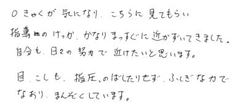 O きゃくが 気になり、こちらに 見てもらい
指導の けっか、かなり まっすぐに 近づいてきました。
自分も、日々の 努力で 近けたいと思います。
目、こしも、指圧、のばしたりせず、ふしぎな力で
なおり、まんぞくしています。